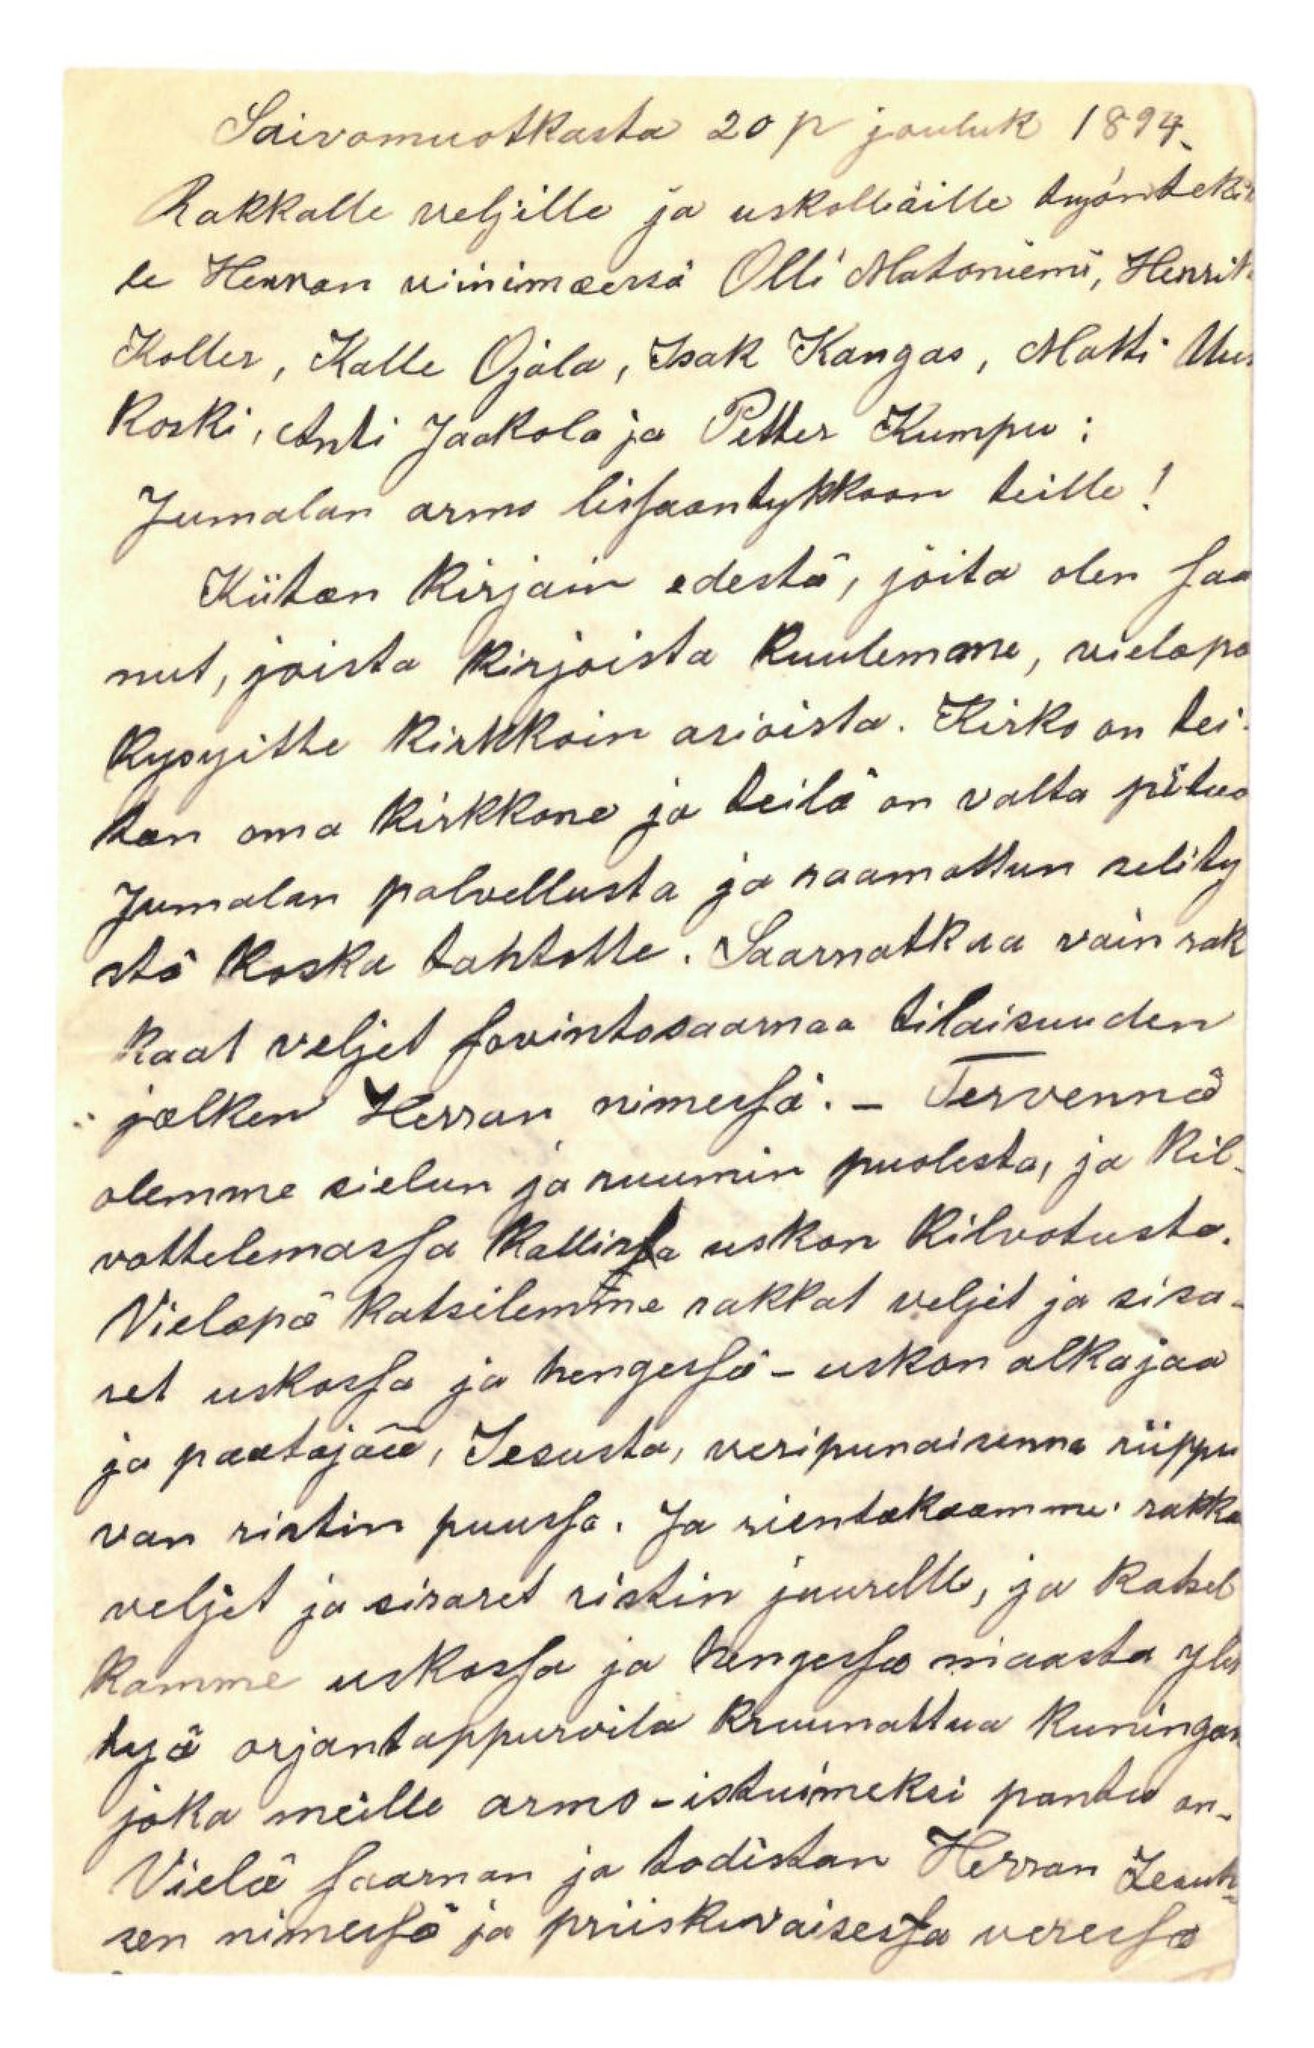 Saivomuotkasta 20 p jouluk 1894.
Rakkalle veljille ja uskolliäille työntekii
le Herran viinimäessä Olli Matoniemi, Henrik
Koller, Kalle Ojala, Isak Kangas, Matti Uus
Koski, Anti Jaakola ja Petter Kumpu:
Jumalan armo lissaantykkoon teille!
Kiitän kirjain edestä, joita olen saa
nut, joista kirjoista kuulemme, vieläpä
kysyitte kirkkoin asioista. Kirko on tei-
tän oma kirkkone ja teilä on valta pitää
Jumalan palvellusta ja raamattun selity
stä koska tahtotte. Saarnatkaa vain rak
kaat veljet sovintosaarnaa tilaisuuden
jälken Herran nimessä. - Tervennä
olemme sielun ja ruumin puolesta, ja kil-
vottelemassa kallista uskon kilvotusta.
Vieläpä katselemme rakkat veljet ja sisa-
ret uskossa ja hengessä - uskon alkajaa
ja päätäjää, Jesusta, veripunaisenna riippu
van ristin puussa. Ja rientäkäämme rakka
veljet ja sisaret ristin juurelle, ja katsel
kamme uskossa ja hengessä maasta yles
tyä orjantappurvila kruunattua kuningas
joka meille armo-istuimeksi pantu on.
Vielä saarnan ja todistan Herran Jesuk-
sen nimessä ja priiskuvaisessa veressä